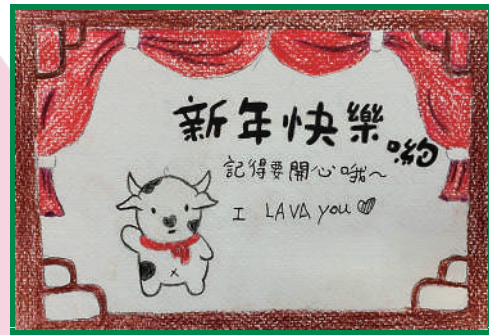 新年快樂
喲
記得要開心哦~
I LAVA you